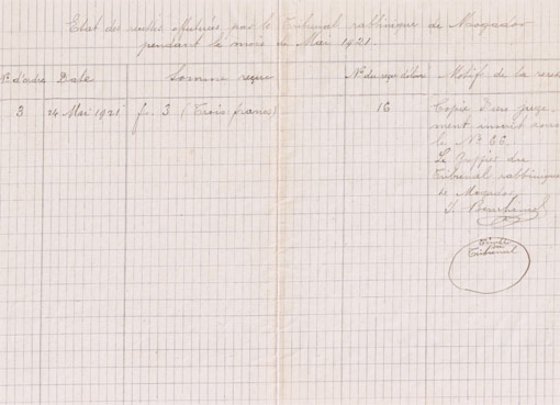 Etat des recettes effectuées par le Tribunal rabbinique de Mogador
pendant le mois de Mai 1921.
N° d'ordre Date Somme reçue N° du reçu délivré Motif de la recette
3 24 Mai 1921 fr. 3 (Trois francs) 16 Copie d'un juge
ment inscrit sous
le N° 66.
Le Greffier du
Tribunal rabbinique
de Mogador
Timbre
du
Tribunal